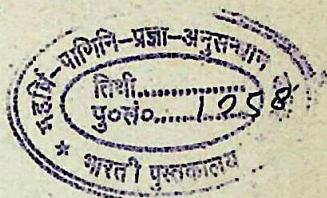 महर्षि-पाणिनि-प्रज्ञा-अनुसन्धान
तिथी..................
पु०सं०.......1258
* भारती पुस्तकालय